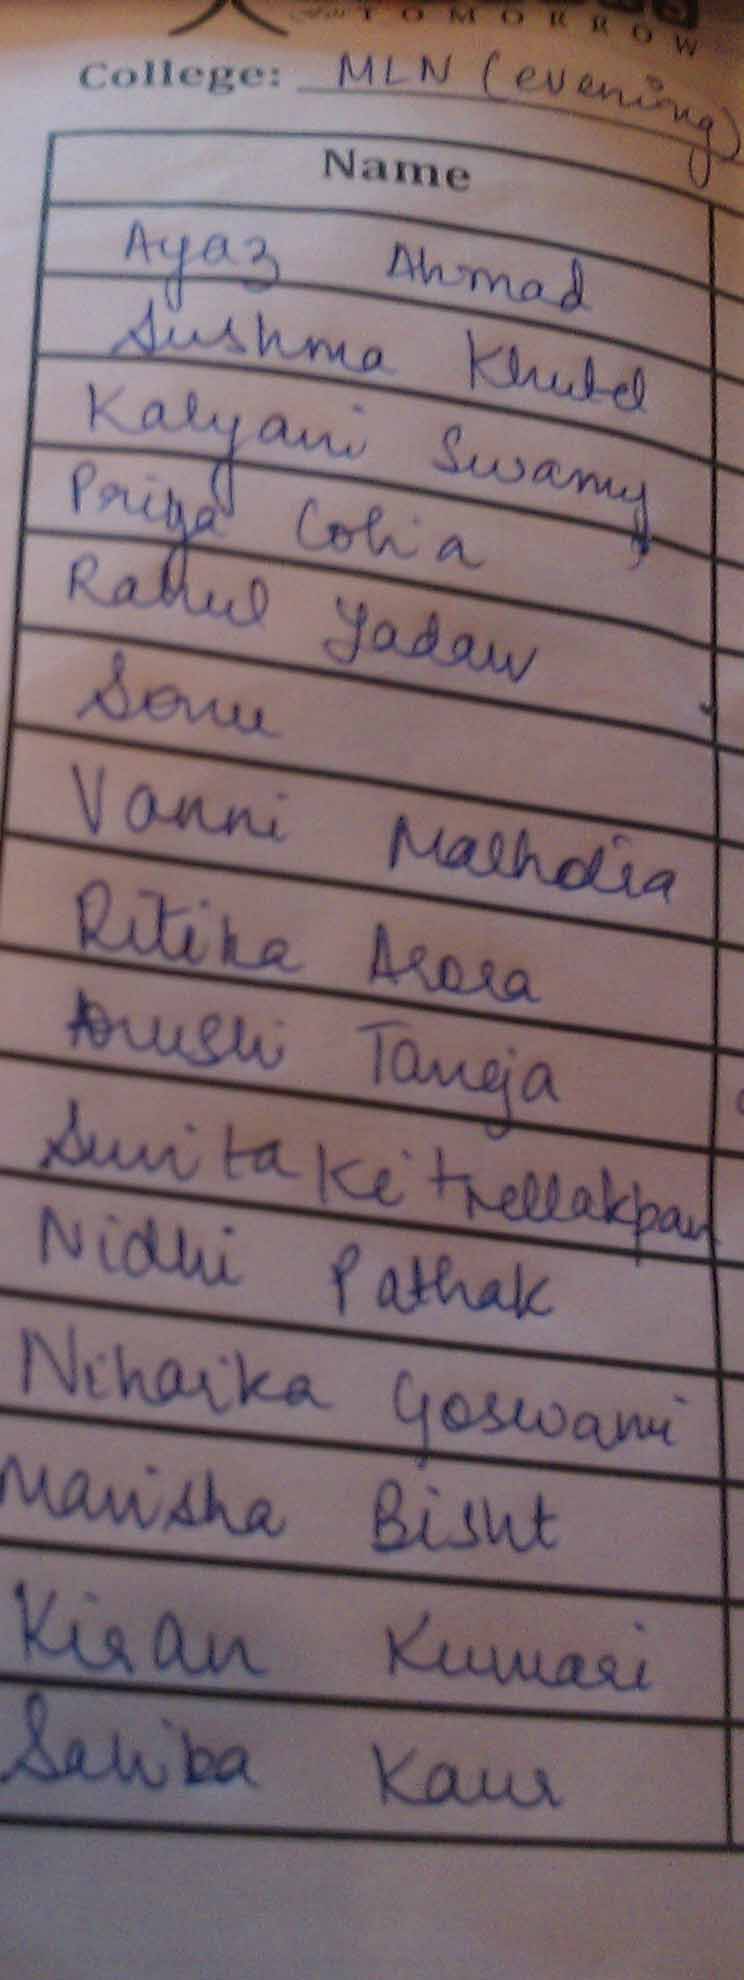 TOMORROW
College: MLN (evening)
Name
Ayaz Ahmad
Sushma
Kalyani Swamy
Priya Cohia
Rahul Yadaw
Sonu
Vanni
Ritika Arora
Arushi Taneja
Sunita
Nidhi Pathak
Niharika Goswami
Manisha Bisht
Kiran Kumari
Sahiba Kaur